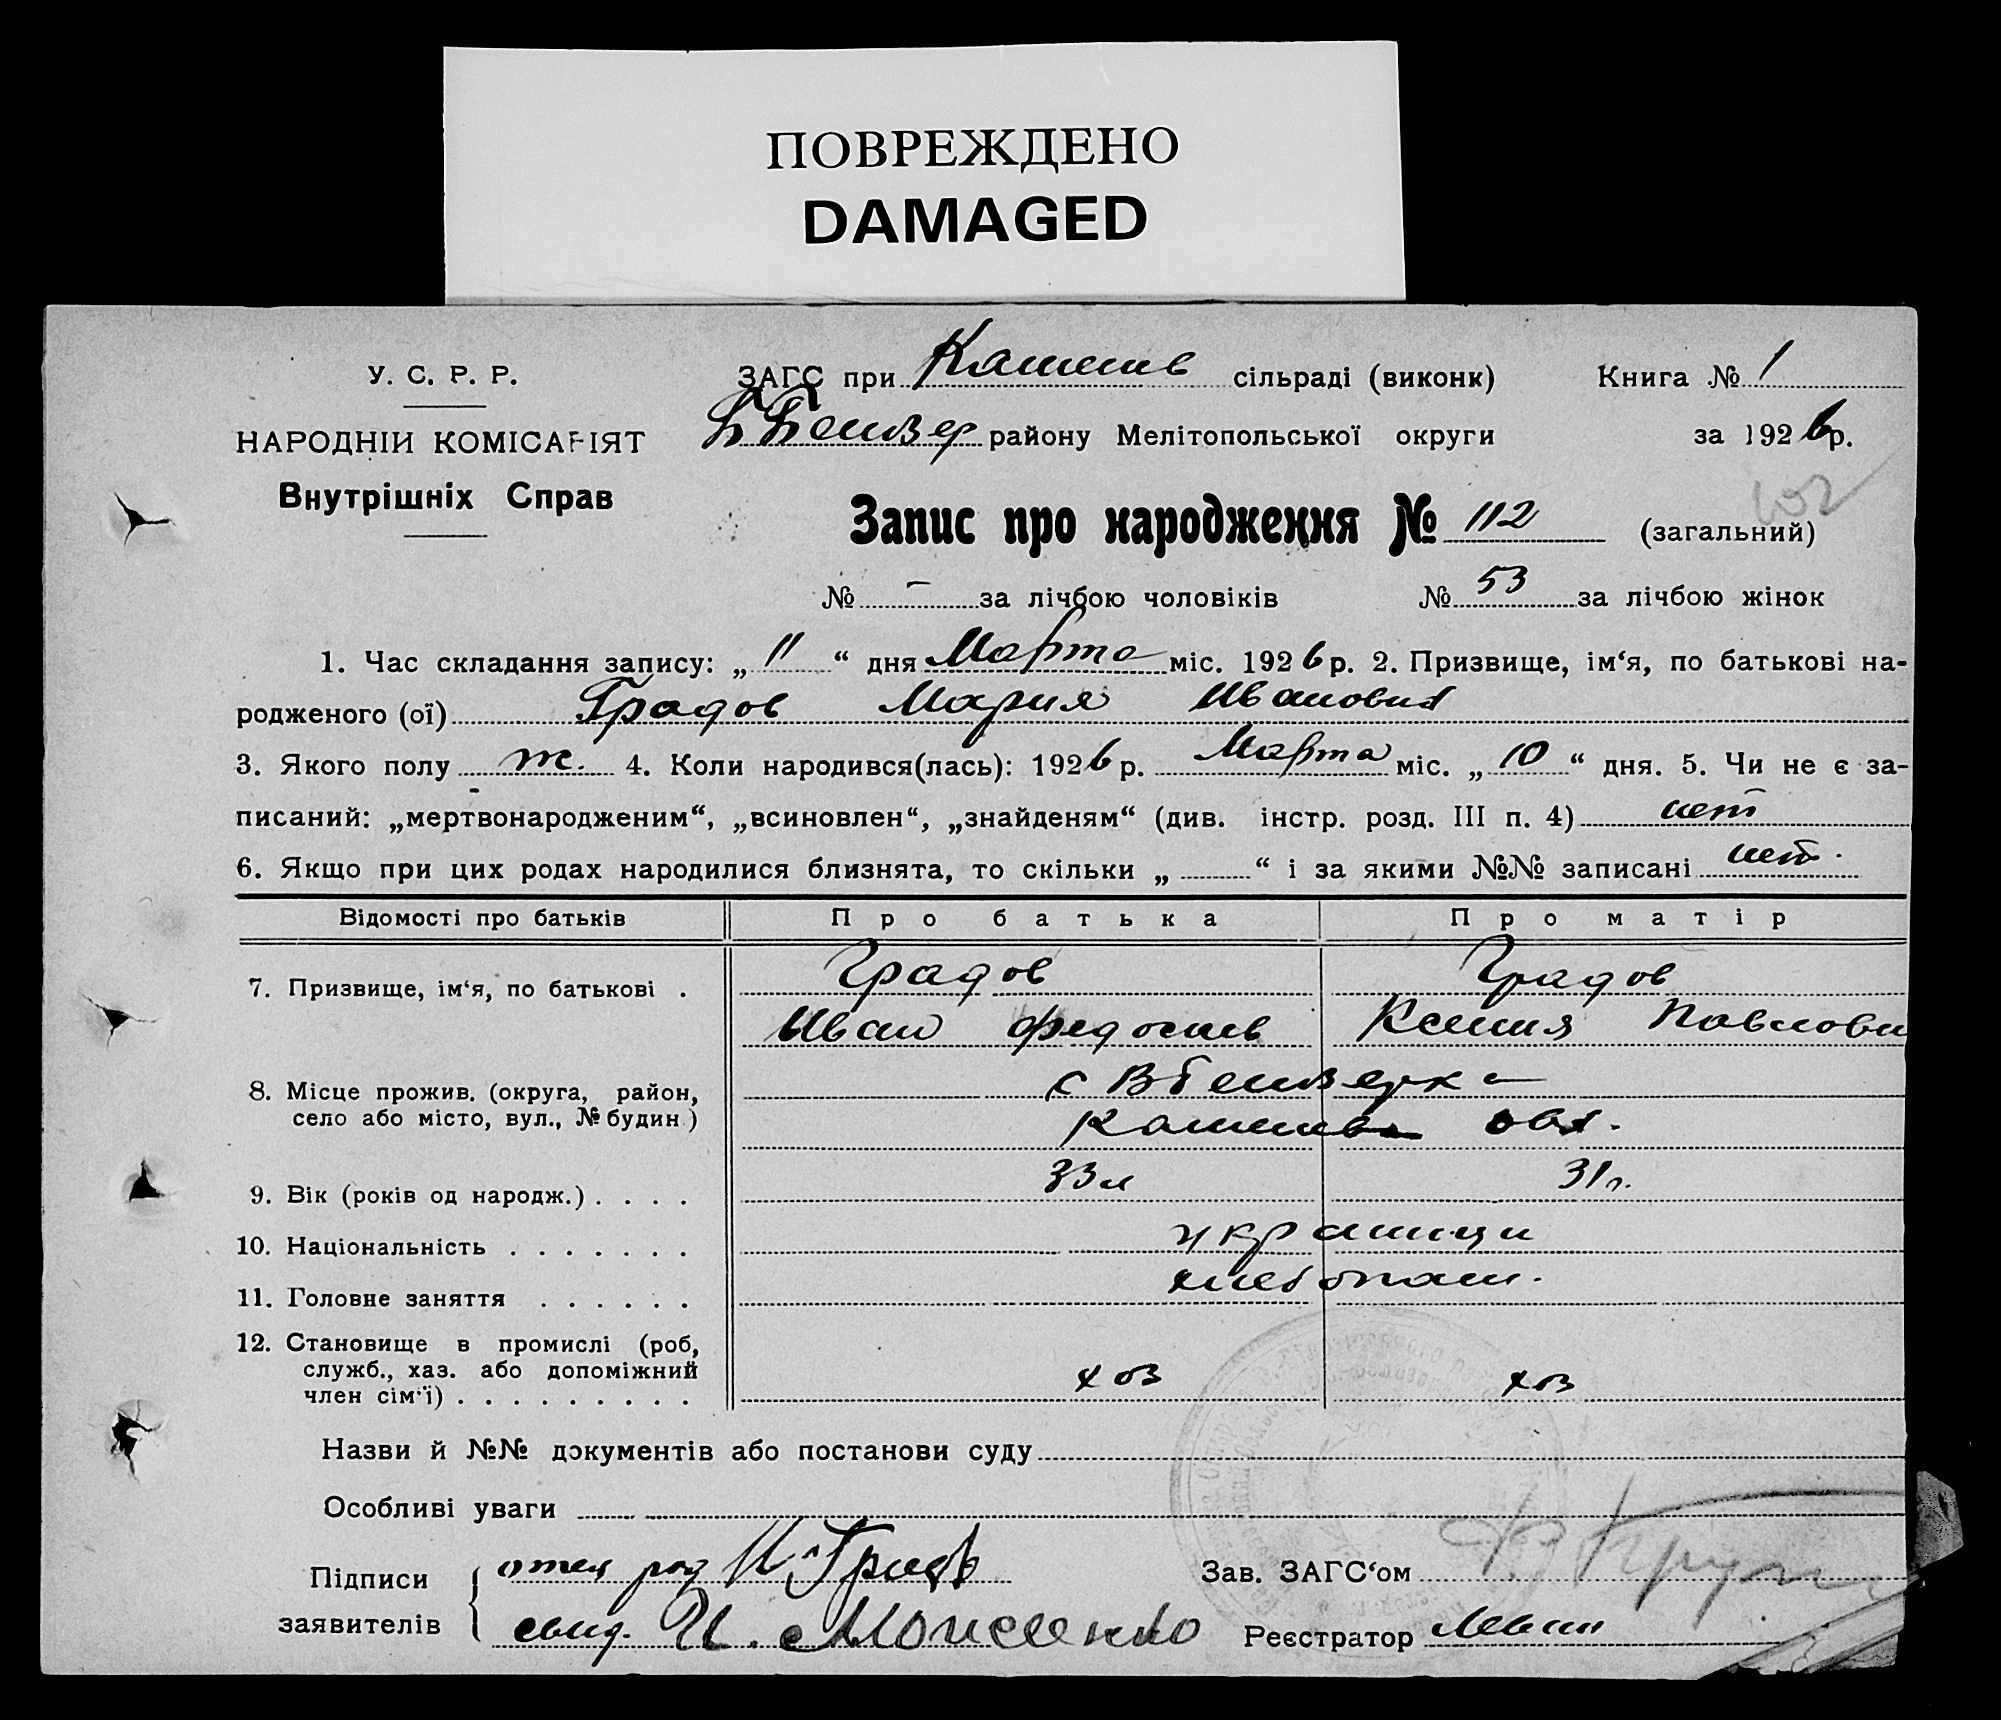 ПОВРЕЖДЕНО
DAMAGED
У. С. Р. Р.
НАРОДНІЙ КОМІСАРІЯТ
Внутрішніх Справ
ЗАГС при сільраді (виконк)
Книга № 1
району Мелітопольської округи
за 1926 р.
102
Запис про народження № 112 (загальний)
№ – за лічбою чоловіків
№ 53 за лічбою жінок
1. Час складання запису: „ 11 “ дня Марта міс. 1926 р. 2. Призвище, ім‘я, по батькові на-
родженого (ої) Градов Мария Иванович
3. Якого полу ж. 4. Коли народився(лась): 1926 р. Марта міс. „ 10 “ дня. 5. Чи не є за-
писаний: „мертвонародженим“, „всиновлен“, „знайденям“ (див. інстр. розд. III п. 4) нет
6. Якщо при цих родах народилися близнята, то скільки „ “ і за якими №№ записані нет.
Відомості про батьків
Про батька
Про матір
7. Призвище, ім‘я, по батькові .
Градов
Градов
Иван Федосиев
Ксения Павлови
8. Місце прожив. (округа, район,
село або місто, вул., № будин.)
33 л
31 л.
9. Вік (років од народж.) . . . .
10. Національність . . . . . . .
украинци
11. Головне заняття . . . . . .
хлебопаш.
12. Становище в промислі (роб,
служб., хаз. або допоміжний
член сім‘ї) . . . . . . . . .
хоз
хоз
Назви й №№ документів або постанови суду
Особливі уваги
Підписи
заявителів
отец И Градов
свид. И. Моисеенко
Зав. ЗАГС‘ом
Реєстратор